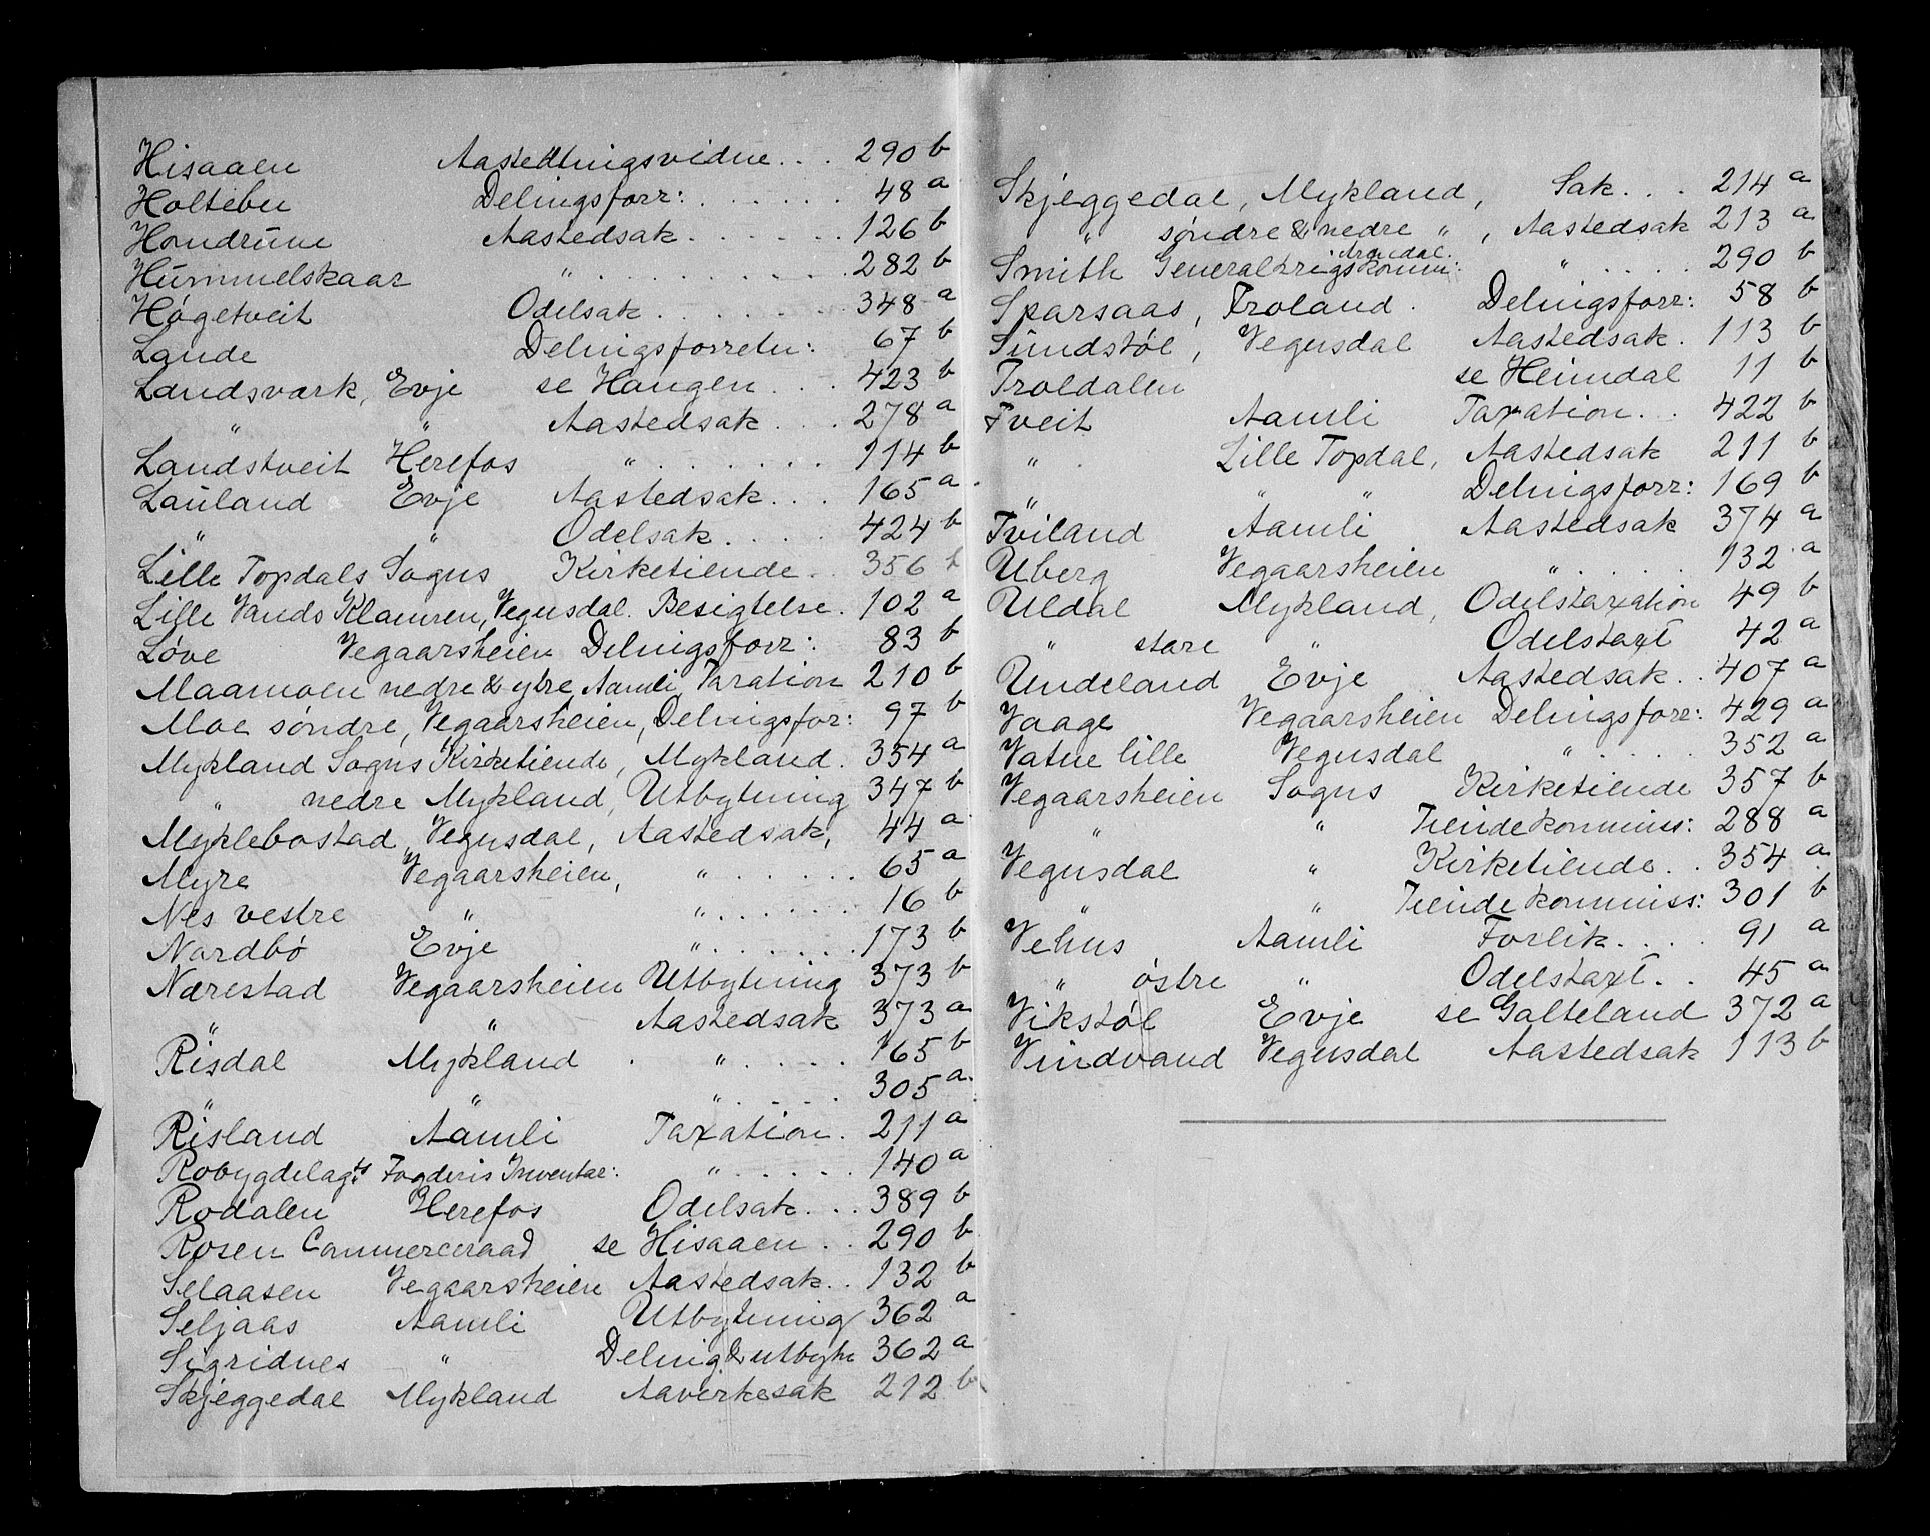 Hisaaen Aastedtingsvidne . . . 290 b
Holtebu Delingsforr: . . . . . . 48 a
Homdrüm Aastedsak . . . . . . 126 b
Hümmelskaar " . . . . . . . . . . 282 b
Høgetveit Odelsak . . . . . . . 348 a
Lande Delingsforretn: 67 b
Landsverk, Evje se Haugen . . . 423 b
" " Aastedsak . . . 278 a
Landstveit Herefos " . . . . . . . 114 b
Lauland Evje Aastedsak . . . 165 a
" " Odelsak . . . . 424 b
Lille Topdals Sogns Kirketiende . . 356 b
Lille Vands Klamren, Vegusdal. Besigtelse . 102 a
Løve Vegaarsheien Delingsforr: 83 b
Maamoen nedre & ytre, Aamli, Taxation 210 b
Moe søndre, Vegaarsheien, Delingsfor: 97 b
Mykland Sogns Kirketiende, Mykland . 354 a
" nedre Mykland, Utbytning 347 b
Myklebostad, Vegusdal, Aastedsak, 44 a
Myre Vegaarsheien, " . . . . . . 65 a
Nes vestre " " . . . . . . 16 b
Nardbö Evje " . . . . . . . 173 b
Nærestad Vegaarsheien Utbytning 373 b
" " Aastedsak 373 a
Risdal Mykland . " . . . . . 165 b
" " " . . . . . 305 a
Risland Aamli Taxation . 211 a
Robygdelagts Fogderis Inventar: " . . . . . 140 a
Rodalen Herefos Odelsak . . . 389 b
Rosen Commerceraad se Hisaaen . . 290 b
Selaasen Vegaarsheien Aastedsak . . 132 b
Seljaas Aamli Utbytning 362 a
Sigridnes " Deling & utbytn 362 a
Skjeggedal Mykland Aavirkesak 212 b
Skjeggedal, Mykland, Sak . . . 214 a
" søndre & nedre " , Aastedsak 213 a
Arendal.
Smith Generalkrigskomm: " . . . . . 290 b
Sparsaas, Froland . Delingsforr: 58 b
Sündstøl, Vegusdal Aastedsak . 113 b
Troldalen se Heimdal 11 b
Tveit Aamli Taxation . . . 422 b
" . Lille Topdal, Aastedsak 211 b
" " " Delingsforr: 169 b
Tviland Aamli Aastedsak 374 a
Uberg Vegaarsheien " . . . . . 132 a
Uldal Mykland, Odelstaxation 49 b
" store " Odelstaxt 42 a
Undeland Evje Aastedsak . . 407 a
Vaage Vegaarsheien Delingsforr: 429 a
Vatne lille Vegusdal " . . . . . 352 a
Vegaarsheien Sogns Kirketiende 357 b
" " Tiendekommiss: 288 a
Vegusdal " Kirketiende . . 354 a
" " Tiendekommiss: 301 b
Vehus Aamli Forlik . . . . 91 a
" østre " Odelstaxt . . 45 a
Vikstøl Evje se Galteland 372 a
Vindvand Vegusdal Aastedsak 113 b